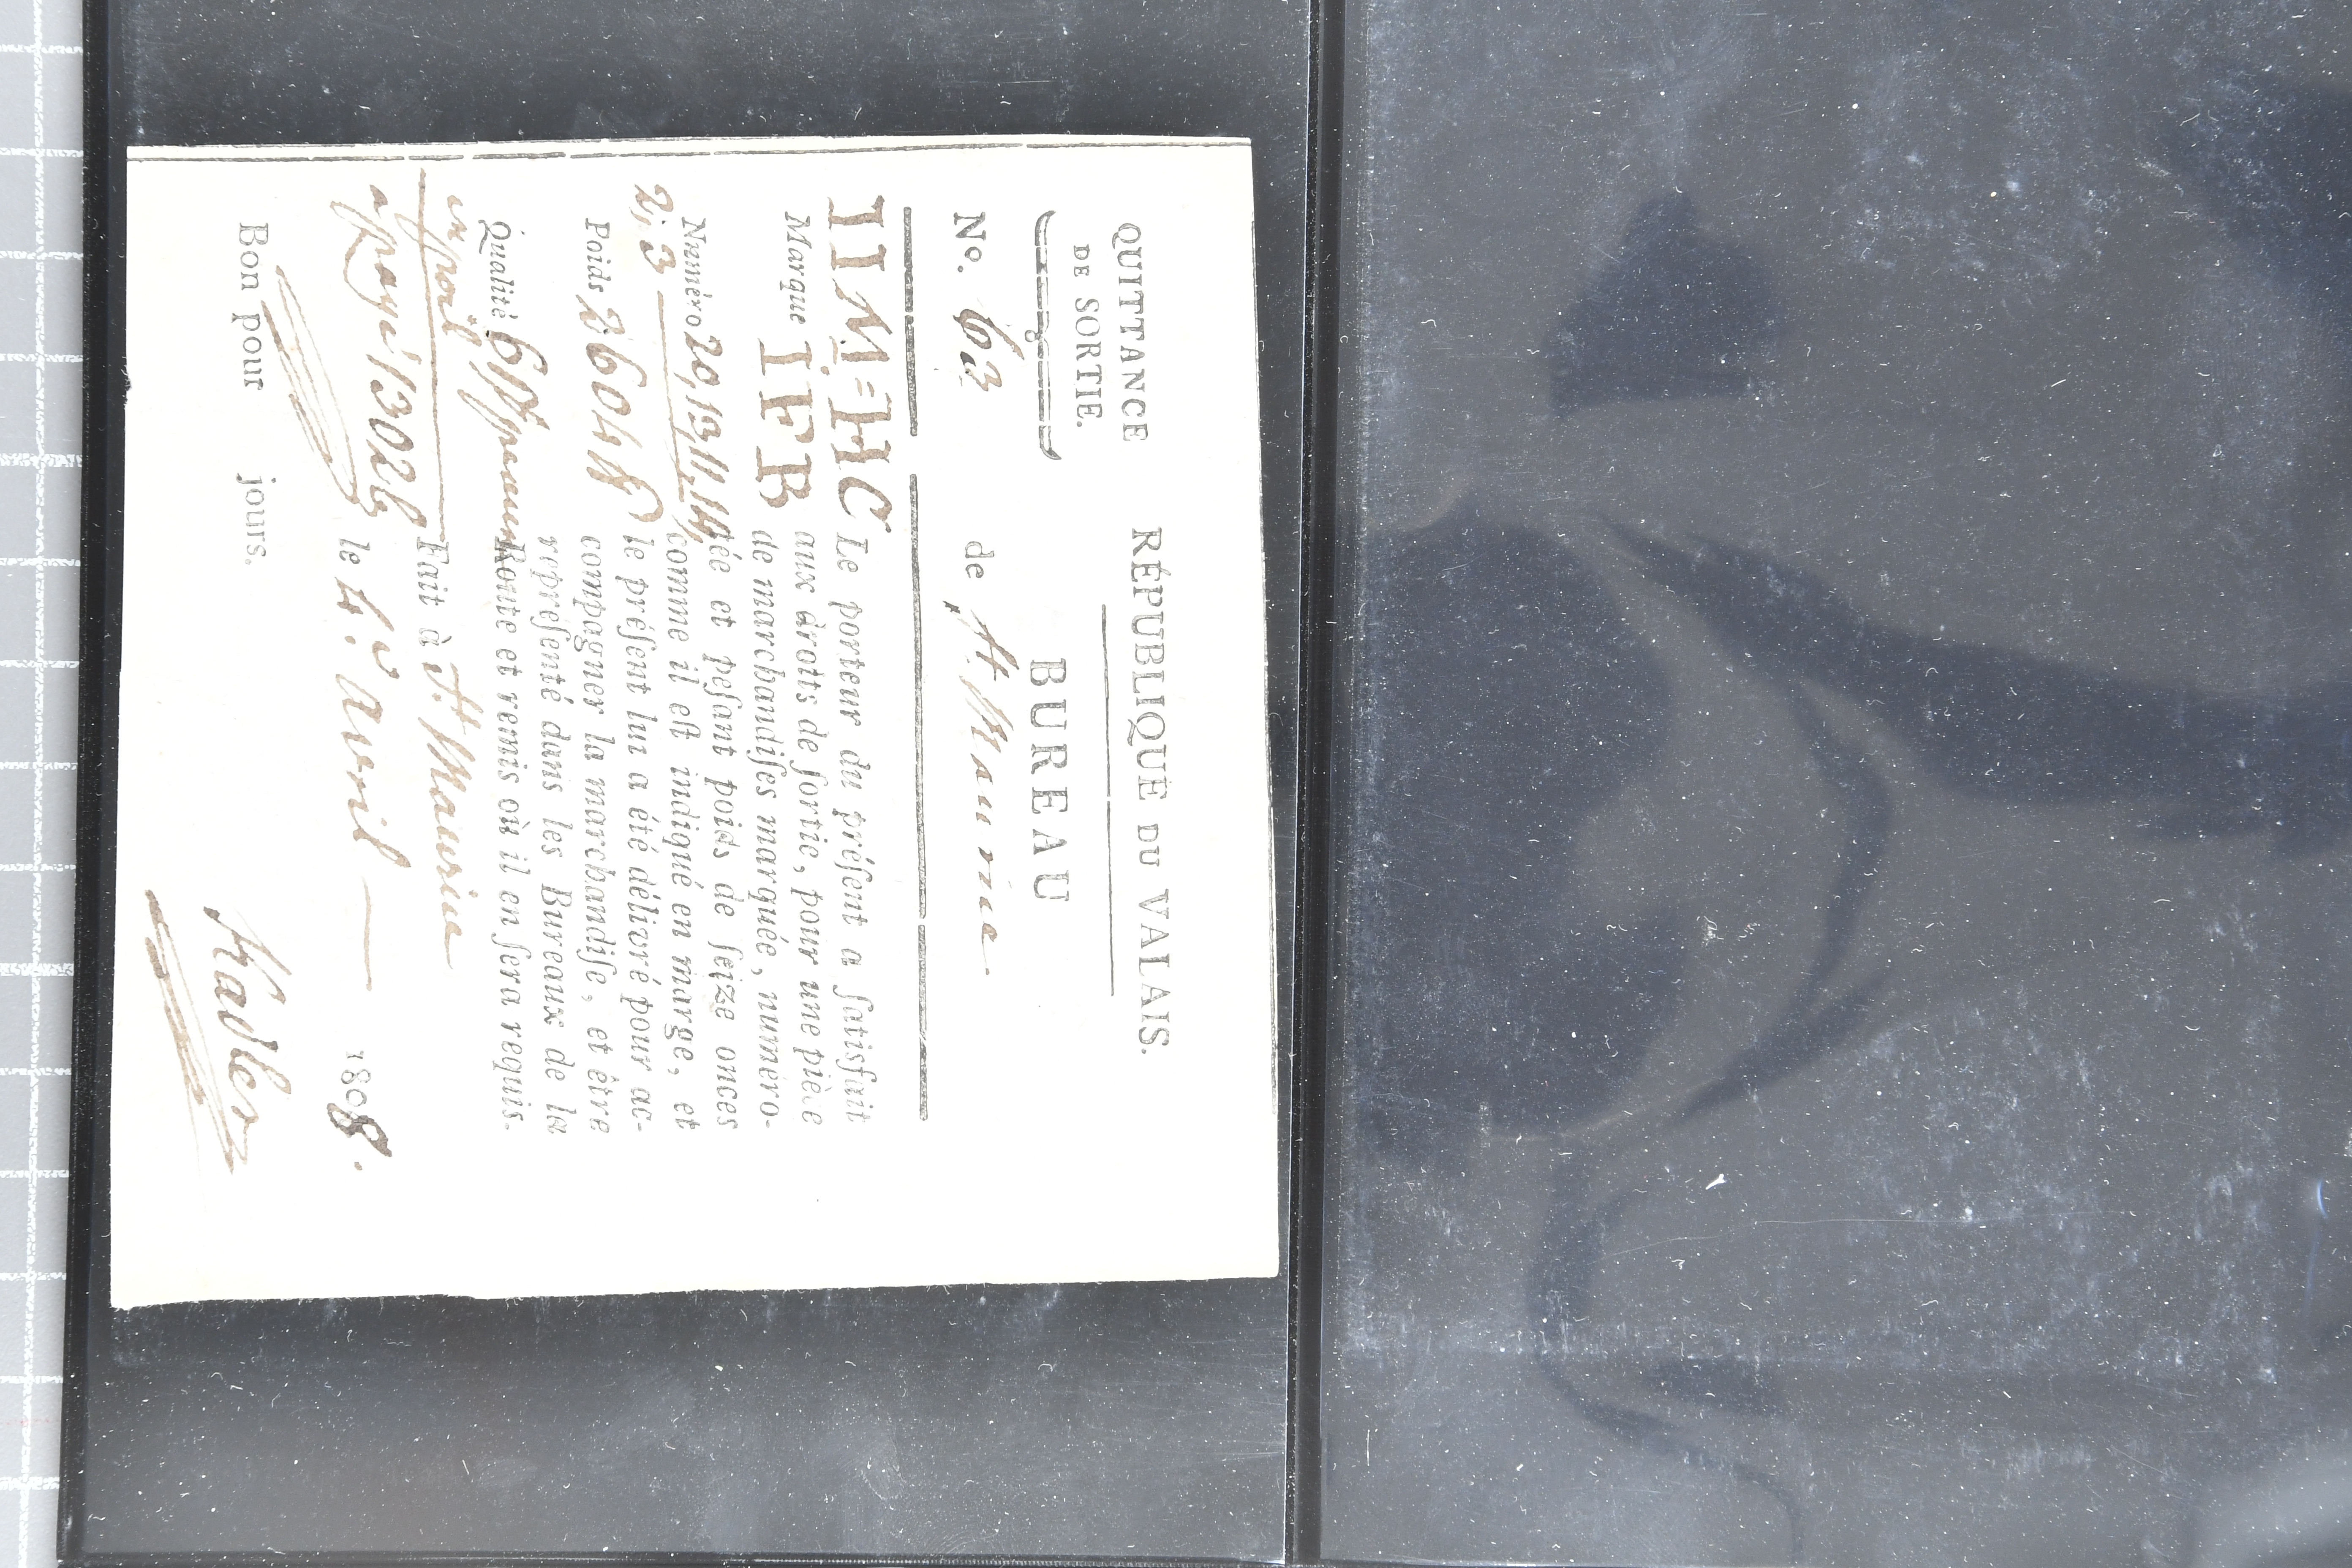 QUITTANCE
DE SORTIE.
N°. 63
RÉPUBLIQUE DU VALAIS.
BUREAU
de St. Maurice
IIM=HC
Marque IFB
Numéro 20, 13, 11, 14,
2, 3
Poids 2604 ℔
Qualité 6
en poil
payé
Bon pour jours.
Le porteur du préſent a ſatisfait
aux droits de ſortie, pour une pièce
de marchandiſes marquée, numéro-
tée et peſant poids de ſeize onces
comme il eſt indiqué en marge, et
le préſent lui a été délivré pour ac-
compagner la marchandiſe, et être
repreſenté dans les Bureaux de la
Route et remis où il en ſera requis.
Fait à St. Maurice
le 4.e avril 1808.